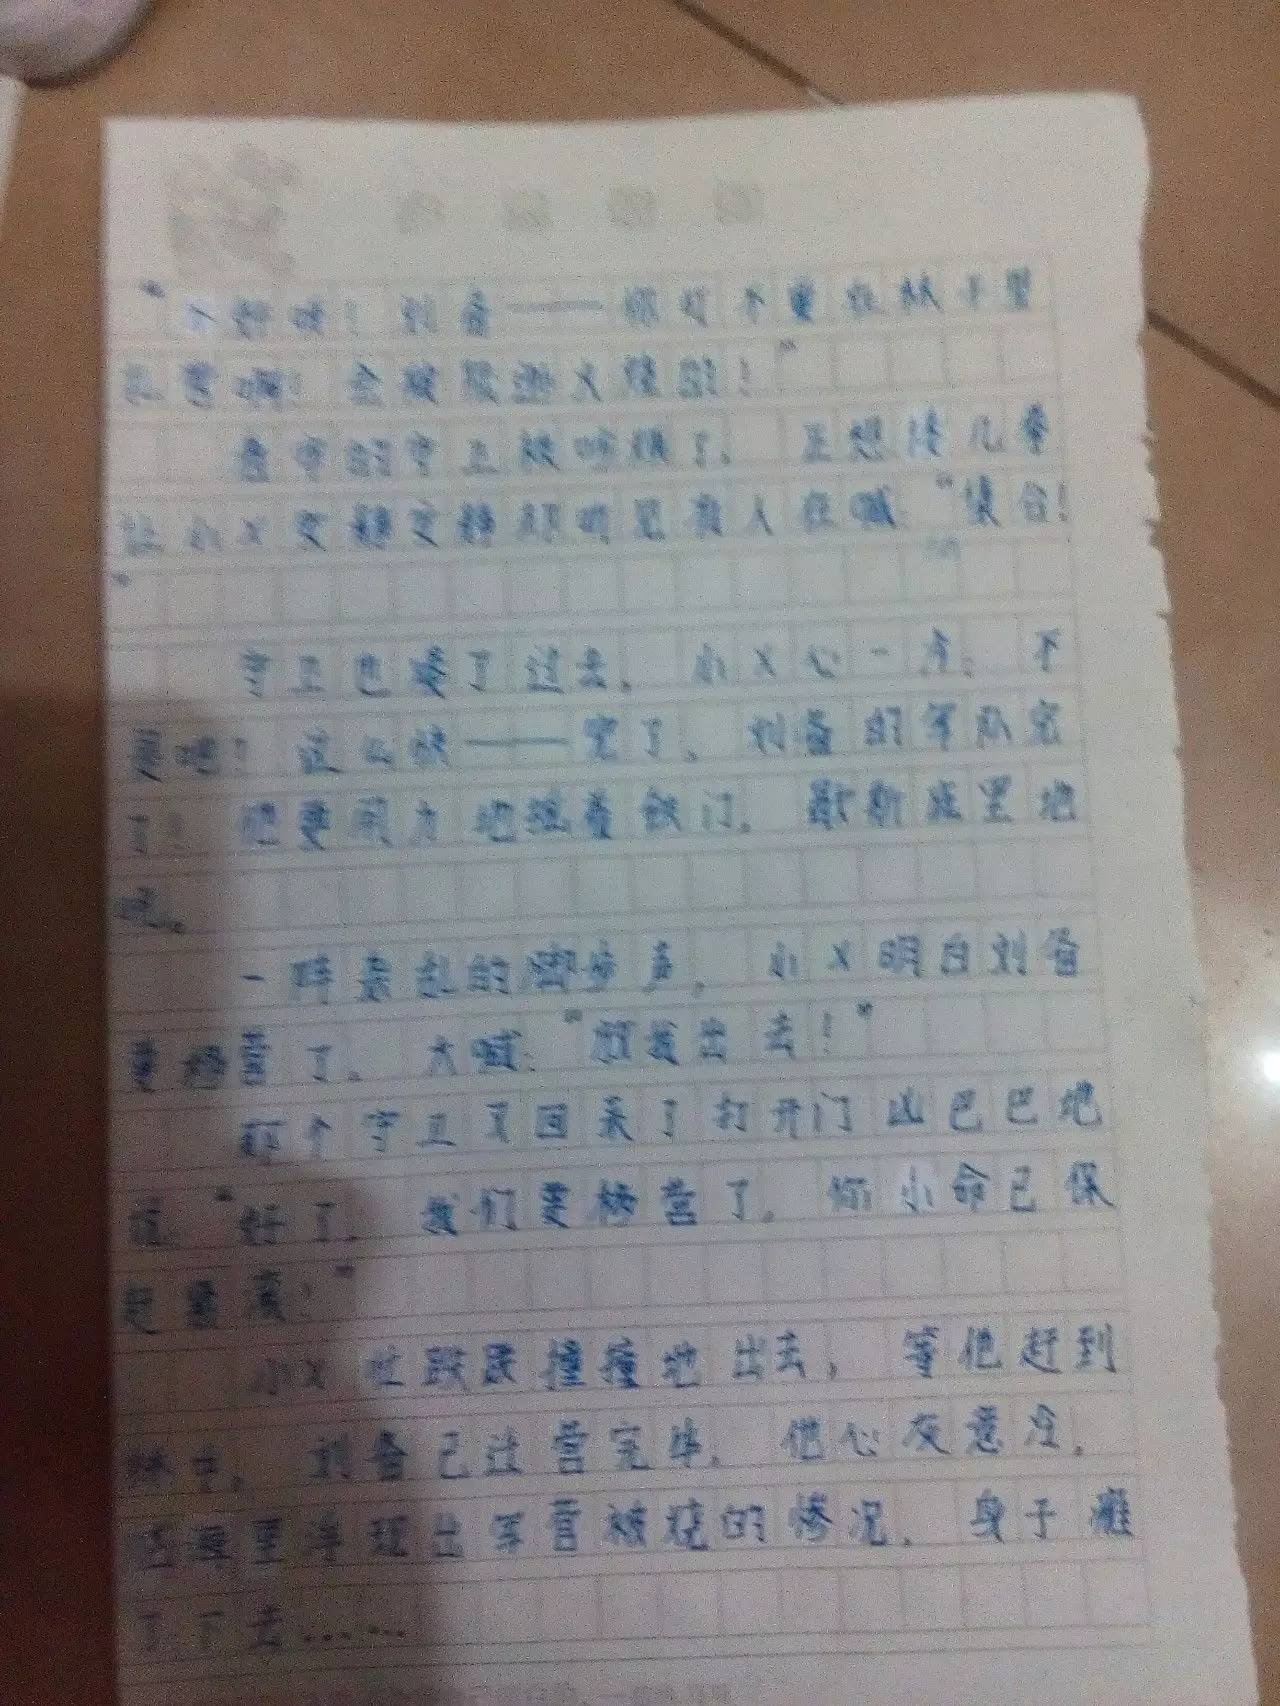 "不好啦！刘备——你可不要在林子里
扎营啊！会被陆逊火烧的！"
看守的守卫被吵烦了，正想揍几拳
让小X安静安静却听见有人在喊："集合！
"
守卫也凑了过去，小X心一冷，不
要吧！这么快——完了，刘备的军队完
了！他要用力地摇着铁门，歇斯底里地
吼。
一阵杂乱的脚步声，小X明白刘备
要移营了，大喊："放我出去！"
那个守卫又回来了打开门凶巴巴地
说："好了，我们要移营了，你小命已保
赶紧滚！"
小X跌跌撞撞地出去，等他赶到
林中，刘备已过营完毕，他心灰意冷，
脑海里浮现出军营被烧的惨况，身子瘫
了下去……